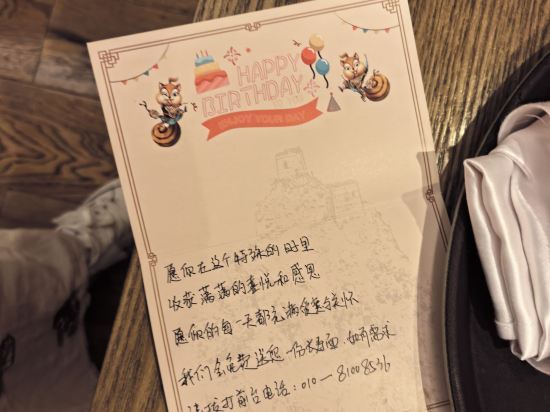 HAPPY
BIRTHDAY
ENJOY YOUR DAY
愿你在这个特殊的日子里
收获满满的喜悦和感恩
愿你的每一天都充满爱与关怀
我们会免费送您一份长寿面,如有需求
请拨打前台电话:010-81008536